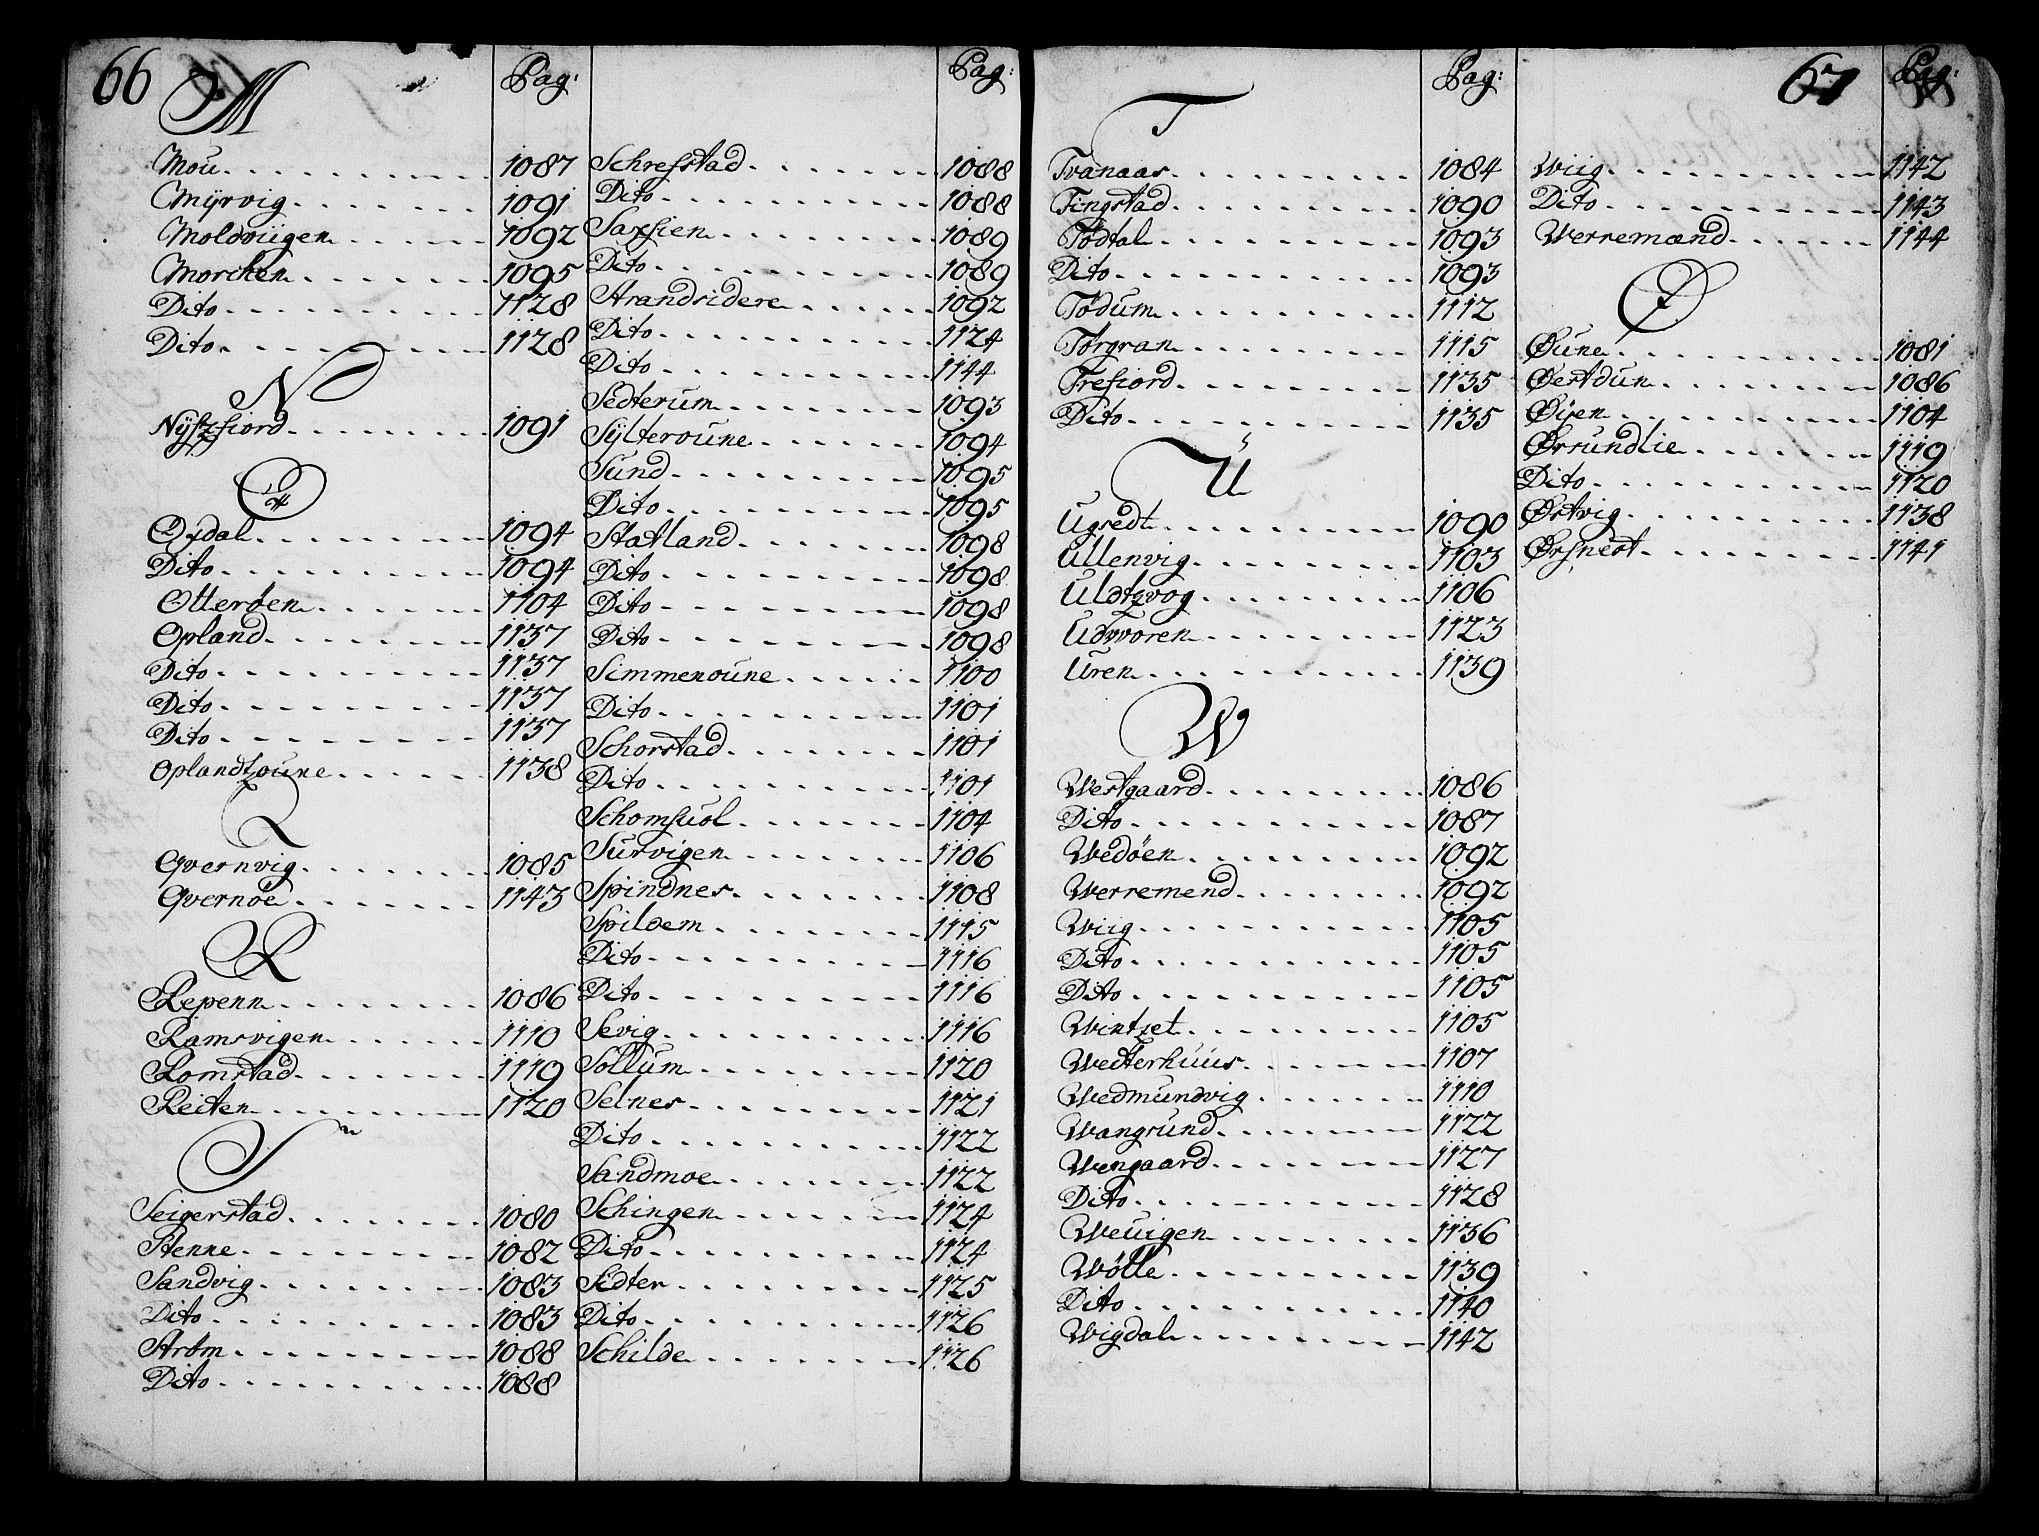 66
M
Pag:
Mou 1087
Mÿrvig 1091
Moldvigen 1092
Morchen 1095
Dito 1128
Dito 1128
N
Nÿszfiord 1091
O
Oydal 1094
Dito 1094
Otterøen 1104
Opland 1137
Dito 1137
Dito 1137
Dito 1137
Oplandzoune 1138
Q
Qvernvig 1085
Qvernøe 1143
R
Repenn 1086
Ramsvigen 1110
Romstad 1119
Reiten 1120
S
Seigerstad 1080
Stenne 1082
Sandvig 1083
Dito 1083
Strøm 1088
Dito 1088
Pag:
Schrefstad 1088
Dito 1088
Saxsien 1089
Dito 1089
Strandsidere 1092
Dito 1124
Dito 1144
Sedterum 1093
Sÿlteroune 1094
Sund 1095
Dito 1095
Statland 1098
Dito 1098
Dito 1098
Dito 1098
Simmenoune 1100
Dito 1101
Schorstad 1101
Dito 1101
Schomsuol 1104
Survigen 1106
Spindnes 1108
Spildem 1115
Dito 1116
Dito 1116
Sevig 1116
Sollum 1120
Selnes 1121
Dito 1122
Sandmoe 1122
Schingen 1124
Dito 1124
Sedter 1125
Dito 1126
Schilde 1126
T
Pag:
Tvanaas 1084
Tingstad 1090
Tødtal 1093
Dito 1093
Tødum 1112
Torgran 1115
Trefiord 1135
Dito 1135
U
Ugsedt 1090
Ullenvig 1103
Uldtzvog 1106
Udvoren 1123
Uren 1139
W
Westgaard 1086
Dito 1087
Wedøen 1092
Werremend 1092
Wiig 1105
Dito 1105
Dito 1105
Wintzet 1105
Wedterhuus 1107
Wedmundvig 1110
Wangrund 1122
Wengaard 1127
Dito 1128
Weuigen 1136
Wølle 1139
Dito 1140
Wigdal 1142
67
Pag:
Wiig 1142
Dito 1143
Werremænd 1144
Ø
Øune 1081
Øertdun 1086
Øÿen 1104
Ørsundlie 1119
Dito 1120
Ørtvig 1138
Ørsnest 1141